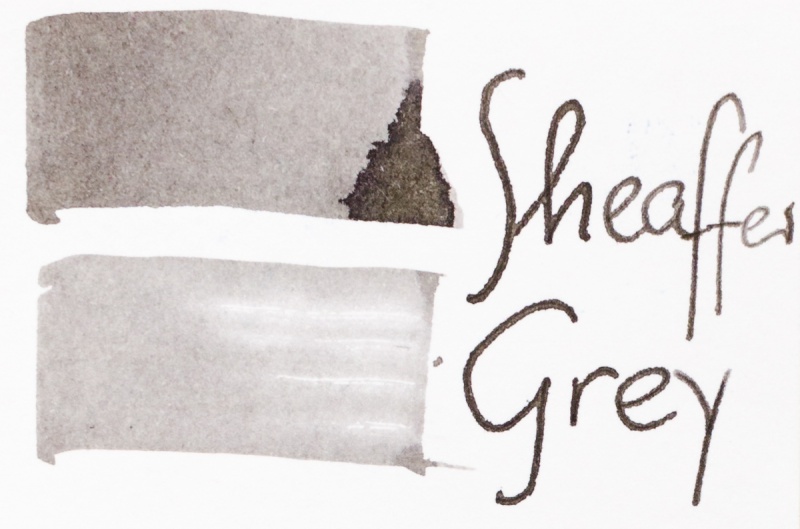 Sheaffer
Grey